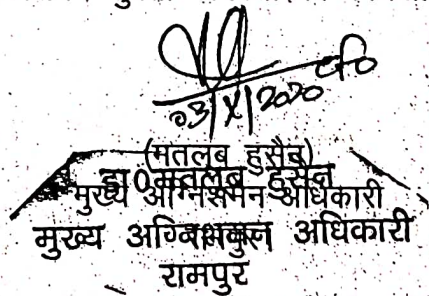 cfo
03/X/2020
(मतलूब हुसैन)
डा0 मतलूब हुसैन
मुख्य अग्निशमन अधिकारी
मुख्य अग्निशमन अधिकारी
रामपुर